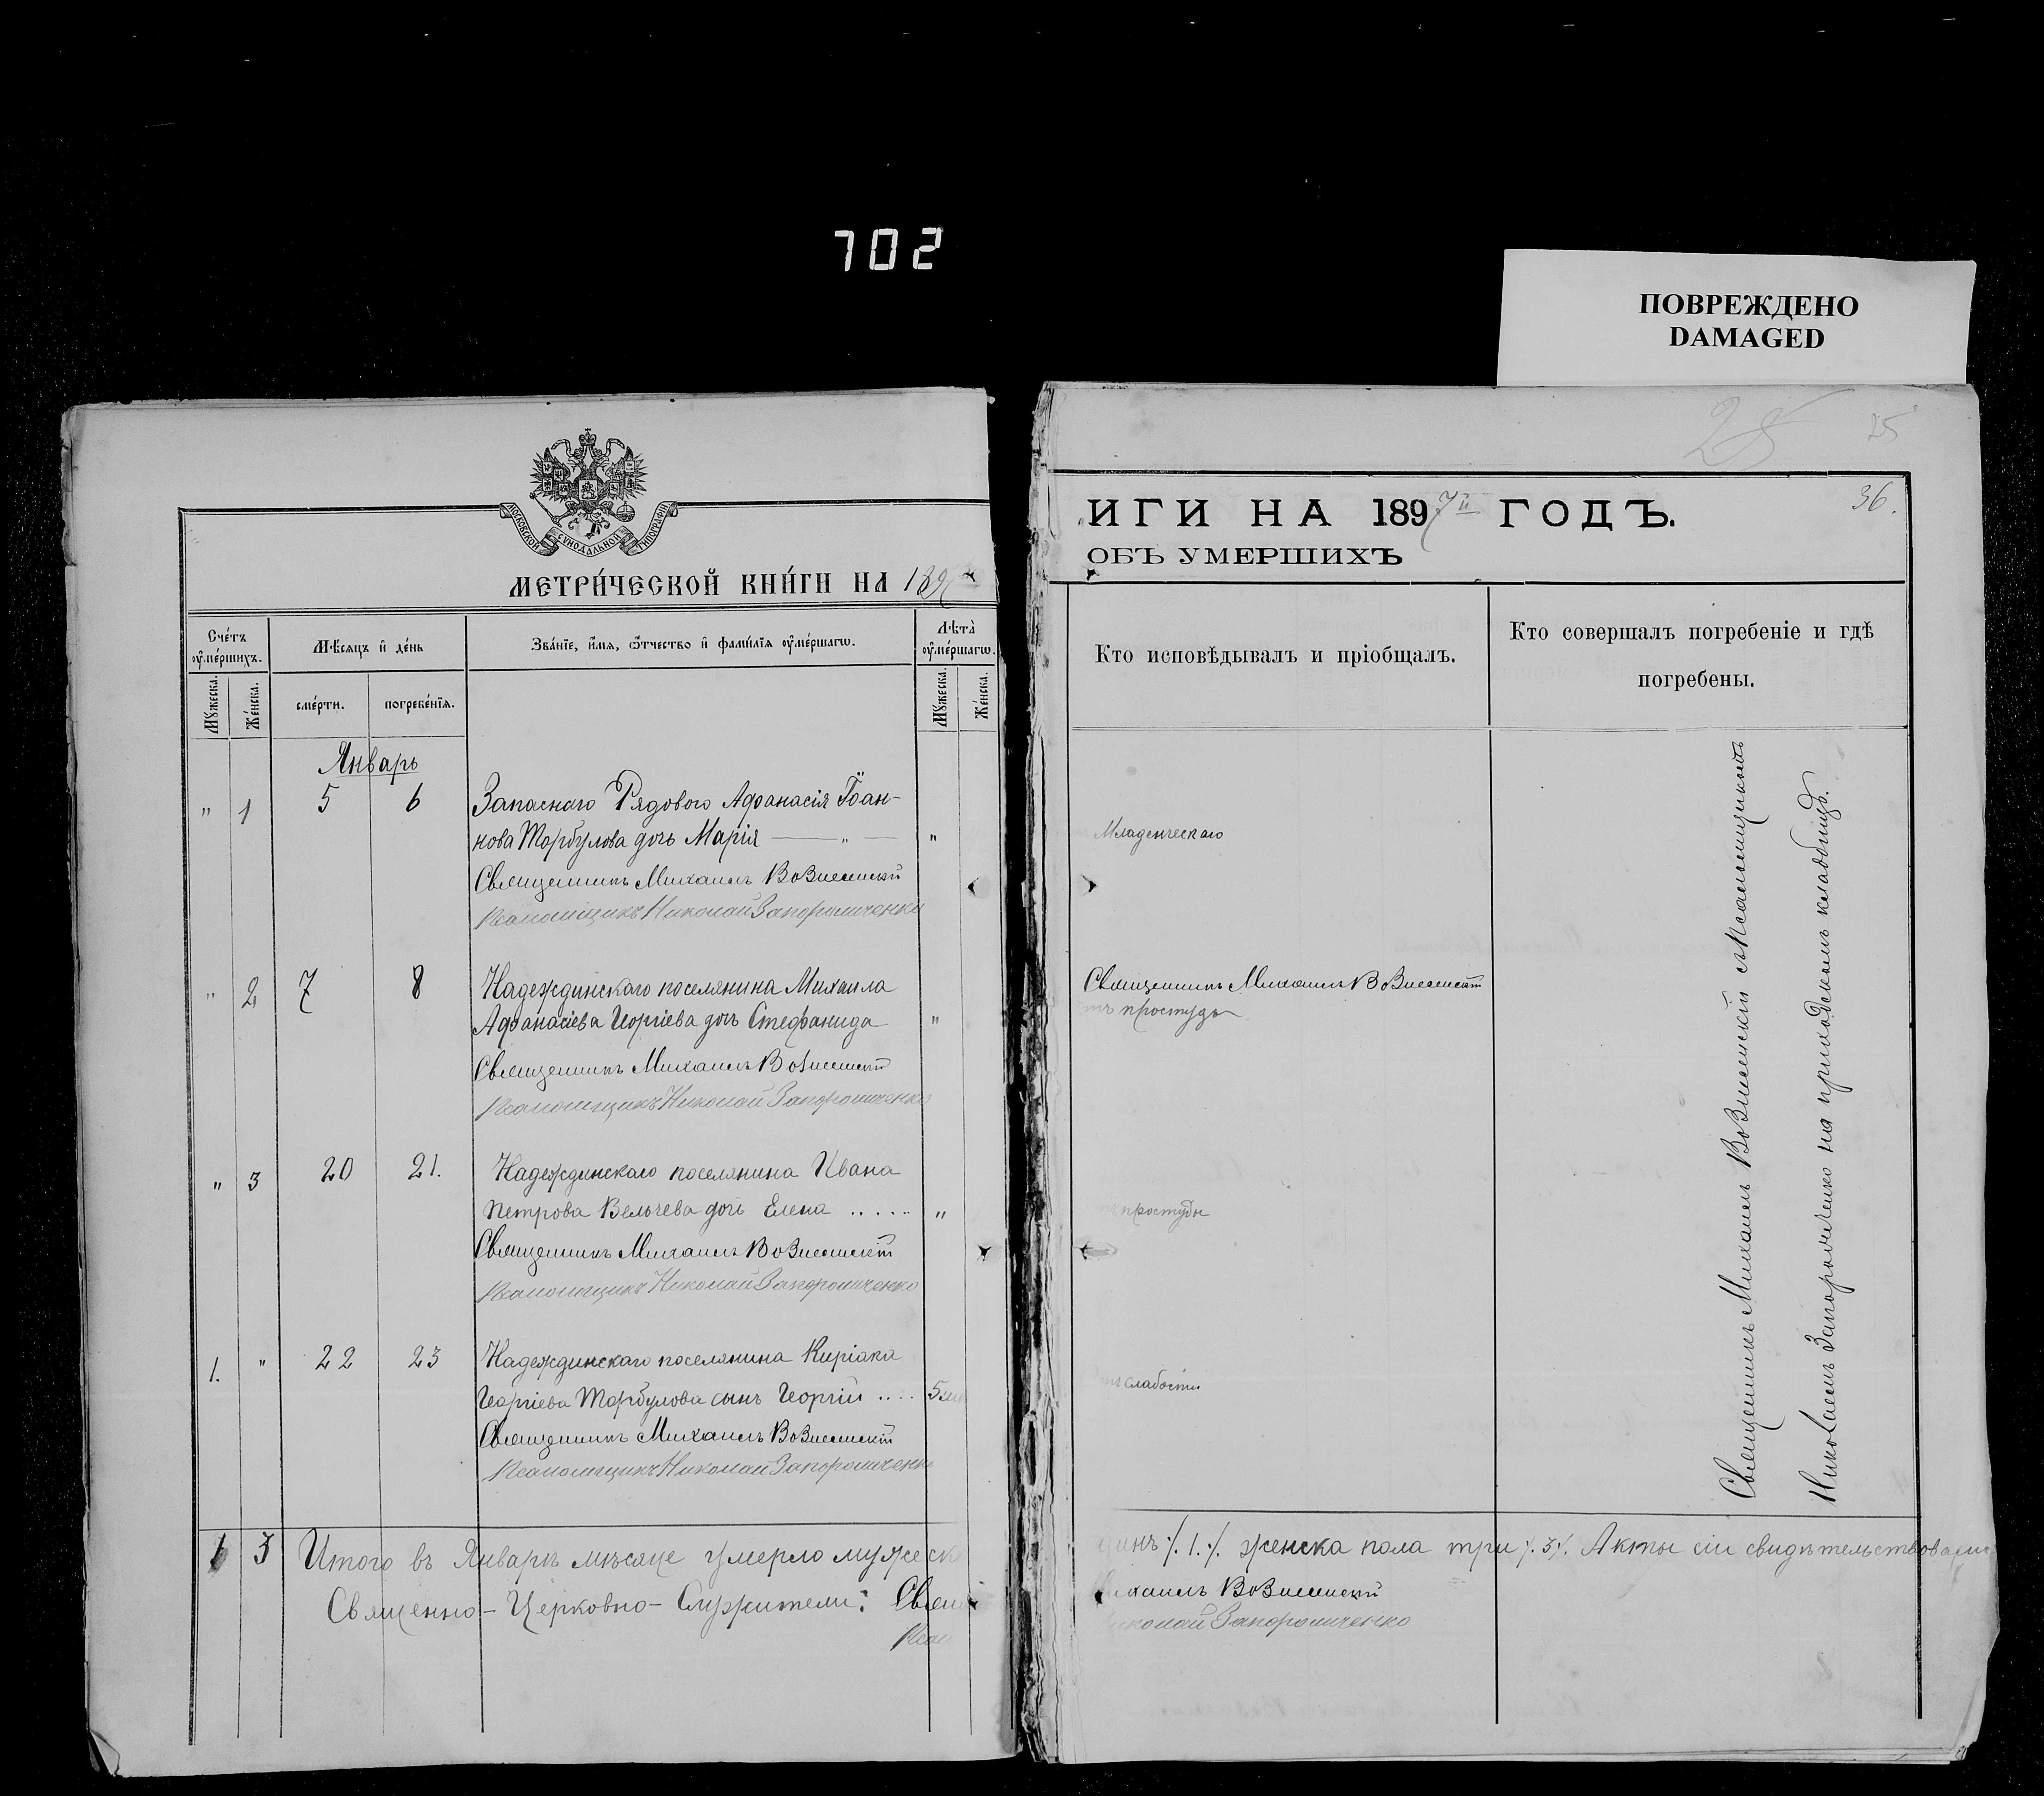 702
ПОВРЕЖДЕНО
DAMAGED
МОСКОВСКОЙ СѴНОДАЛЬНОЙ ТИПОГРАФІИ
МЕТРИ́ЧЕСКОЙ КНИ́ГИ НА 189
Сче́тъ ᲂу҆ме́ршихъ.
Мѣ́сяцъ и҆ де́нь
Зва́нїе, и҆́мѧ, ѻ҆́тчество и҆ фами́лїѧ ᲂу҆ме́ршагѡ.
Лѣ́та ᲂу҆ме́ршагѡ.
Мꙋ́жеска.
Же́нска.
сме́рти.
погребе́нїѧ.
Мꙋ́жеска.
Же́нска.
Январь
" 1 5 6 Запаснаго Рядового Афанасія Іоан-
нова Торбулова дочь Марія — " — "
Священникъ Михаилъ Вознесенскій
Псаломщикъ Николай Запорошченко
" 2 7 8 Надеждинскаго поселянина Михаила
Афанасіева Георгіева дочь Стефанида "
Священникъ Михаилъ Вознесенскій
Псаломщикъ Николай Запорошченко
" 3 20 21. Надеждинскаго поселянина Ивана
Петрова Вельчева дочь Елена ..... "
Священникъ Михаилъ Вознесенскій
Псаломщикъ Николай Запорошченко
1. " 22 23 Надеждинскаго поселянина Киріака
Георгіева Торбулова сынъ Георгій .... 5
Священникъ Михаилъ Вознесенскій
Псаломщикъ Николай Запорошченко
1 3 Итого въ Январѣ мѣсяце умерло мужеск
Священно-Церковно-Служители: Свящ
Псал
28 25
36.
ИГИ НА 1897й ГОДЪ.
ОБЪ УМЕРШИХЪ
Кто исповѣдывалъ и пріобщалъ.
Кто совершалъ погребеніе и гдѣ
погребены.
Младенческаго
Священникъ Михаилъ Вознесенскій
тъ простуды
простуды
слабости
Священникъ Михаилъ Вознесенскій съ Псаломщикомъ
Николаемъ Запорошченко на приходскомъ кладбищѣ.
динъ /.1./. женска пола три /.3/. Акты сіи свидѣтельствовали
ихаилъ Вознесенскій
иколай Запорошченко